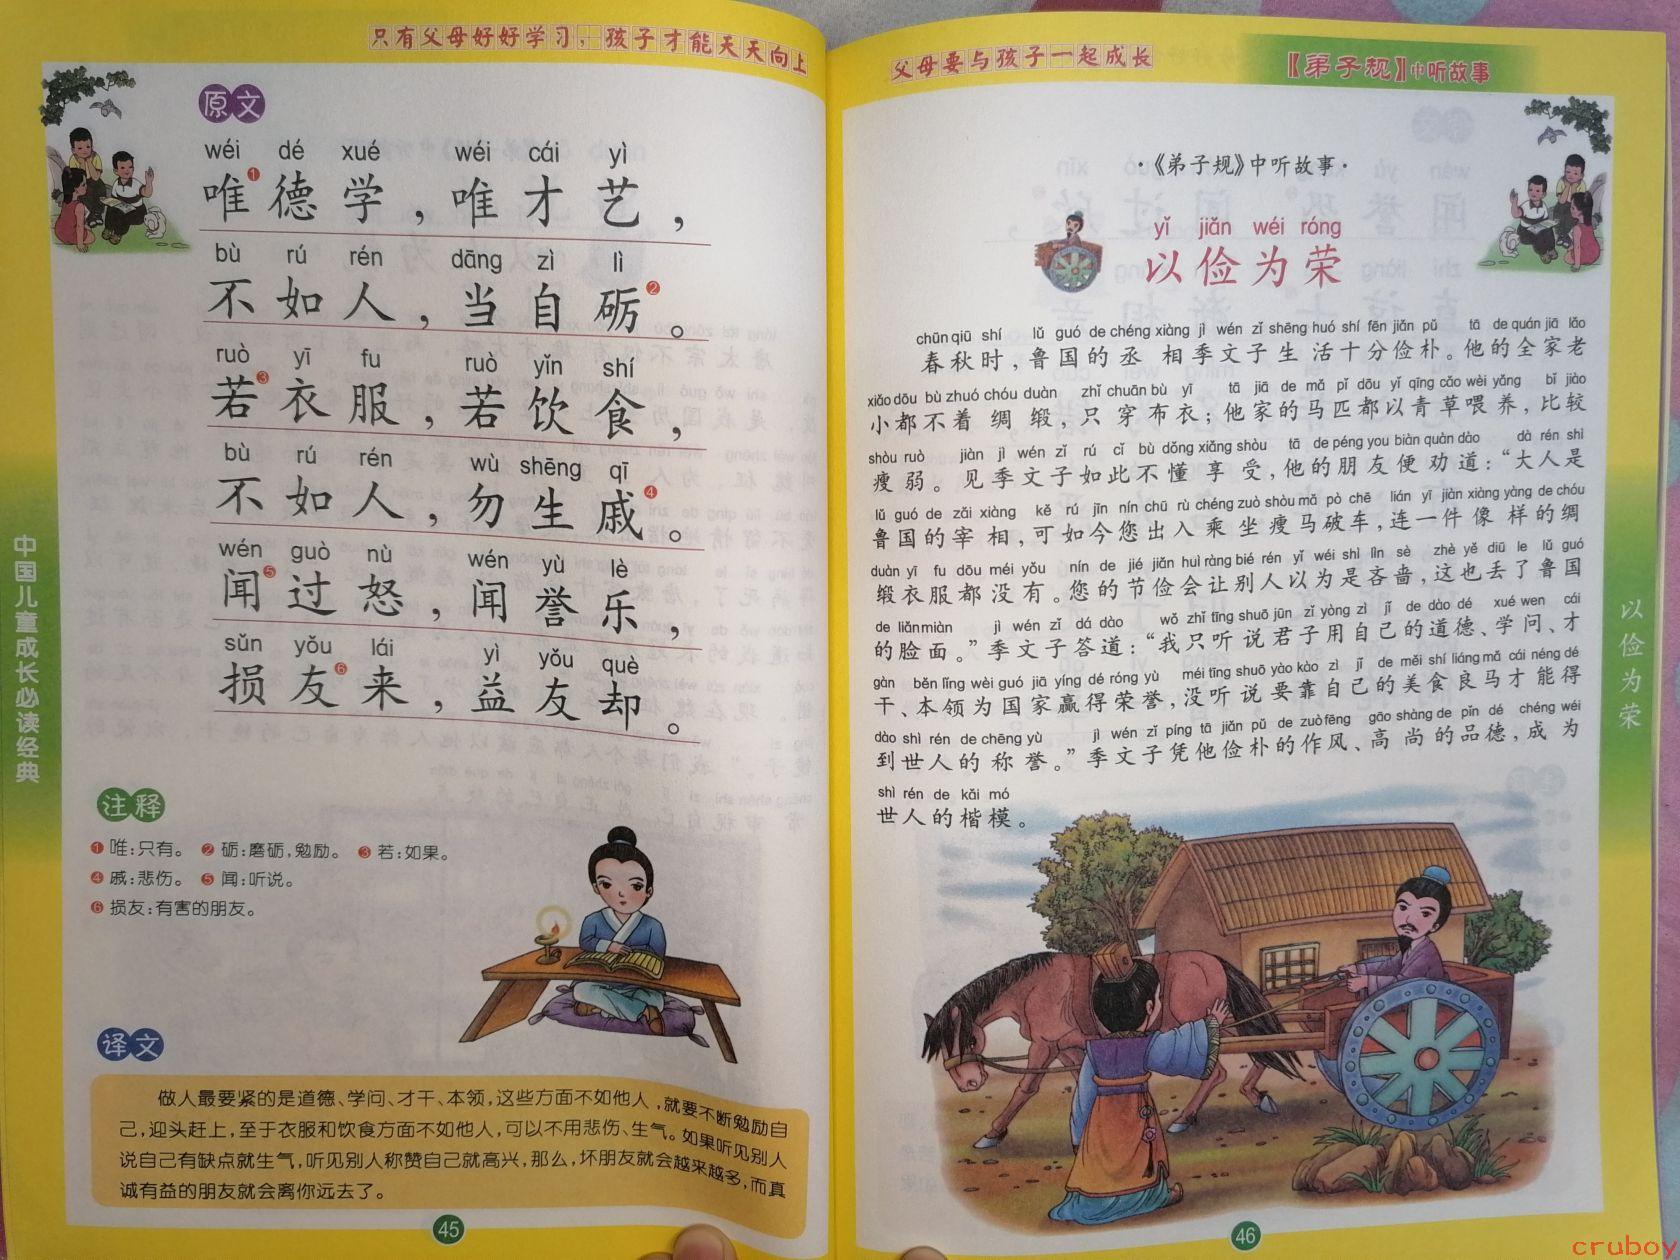 只有父母好好学习，孩子才能天天向上
原文
wéi dé xué wéi cái yì
唯❶德学，唯才艺，
bù rú rén dāng zì lì
不如人，当自砺❷。
ruò yī fu ruò yǐn shí
若❸衣服，若饮食，
bù rú rén wù shēng qī
不如人，勿生戚❹。
wén guò nù wén yù lè
闻❺过怒，闻誉乐，
sǔn yǒu lái yì yǒu què
损友❻来，益友却。
注释
❶唯：只有。 ❷砺：磨砺，勉励。 ❸若：如果。
❹戚：悲伤。 ❺闻：听说。
❻损友：有害的朋友。
译文
做人最要紧的是道德、学问、才干、本领，这些方面不如他人，就要不断勉励自
己，迎头赶上，至于衣服和饮食方面不如他人，可以不用悲伤、生气。如果听见别人
说自己有缺点就生气，听见别人称赞自己就高兴，那么，坏朋友就会越来越多，而真
诚有益的朋友就会离你远去了。
中国儿童成长必读经典
45
父母要与孩子一起成长
【弟子规】中听故事
·《弟子规》中听故事·
yǐ jiǎn wéi róng
以俭为荣
chūn qiū shí lǔ guó de chéng xiàng jì wén zǐ shēng huó shí fēn jiǎn pǔ tā de quán jiā lǎo
春秋时，鲁国的丞相季文子生活十分俭朴。他的全家老
xiǎo dōu bù zhuó chóu duàn zhǐ chuān bù yī tā jiā de mǎ pǐ dōu yǐ qīng cǎo wèi yǎng bǐ jiào
小都不着绸缎，只穿布衣；他家的马匹都以青草喂养，比较
shòu ruò jiàn jì wén zǐ rú cǐ bù dǒng xiǎng shòu tā de péng you biàn quàn dào dà rén shì
瘦弱。见季文子如此不懂享受，他的朋友便劝道：“大人是
lǔ guó de zǎi xiàng kě rú jīn nín chū rù chéng zuò shòu mǎ pò chē lián yī jiàn xiàng yàng de chóu
鲁国的宰相，可如今您出入乘坐瘦马破车，连一件像样的绸
duàn yī fu dōu méi yǒu nín de jié jiǎn huì ràng bié rén yǐ wéi shì lìn sè zhè yě diū le lǔ guó
缎衣服都没有。您的节俭会让别人以为是吝啬，这也丢了鲁国
de liǎn miàn jì wén zǐ dá dào wǒ zhǐ tīng shuō jūn zǐ yòng zì jǐ de dào dé xué wen cái
的脸面。”季文子答道：“我只听说君子用自己的道德、学问、才
gàn běn lǐng wèi guó jiā yíng dé róng yù méi tīng shuō yào kào zì jǐ de měi shí liáng mǎ cái néng dé
干、本领为国家赢得荣誉，没听说要靠自己的美食良马才能得
dào shì rén de chēng yù jì wén zǐ píng tā jiǎn pǔ de zuò fēng gāo shàng de pǐn dé chéng wéi
到世人的称誉。”季文子凭他俭朴的作风、高尚的品德，成为
shì rén de kǎi mó
世人的楷模。
以俭为荣
46
cruboy